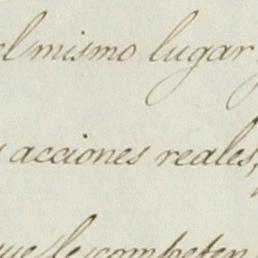 el mismo lugar
acciones reales,
que le competen